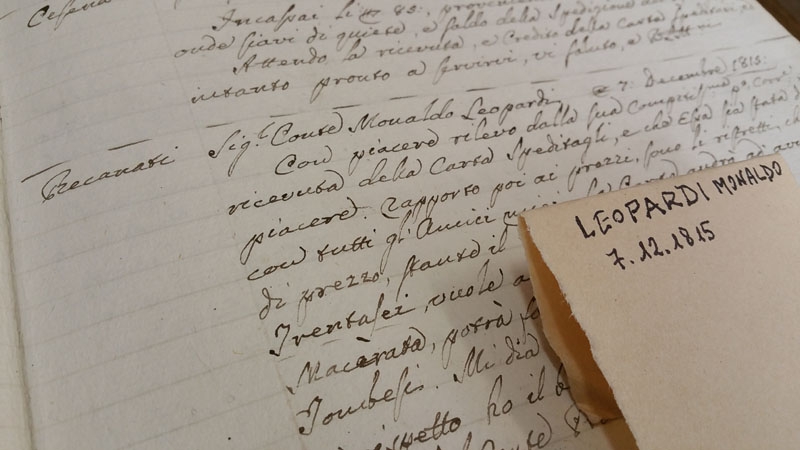 Cesena
Incassai li
onde siavi di quiete, e saldo della Spedizione
Attendo la ricevuta, e Credito della Carta spedita
intanto pronto a servirvi, vi saluto, e
Recanati
Sig.r Conte Monaldo Leopardi 7: Decembre 1815:
Con piacere rilevo dalla sua Compitissima
ricevuta della Carta Speditagli, e che Essa sia stata di
piacere. Rapporto poi ai prezzi, sono li ristretti, che
con tutti gl' Amici
di prezzo, stante il
Trentasei, vuole
Macerata, potrà
Tombesi. Mi dia
ho il
LEOPARDI MONALDO
7.12.1815